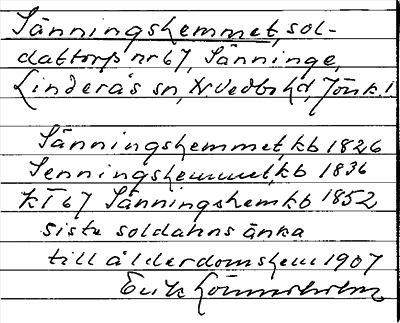 Sänningshemmet, sol-
dattorp nr 67, Sänninge,
Linderås sn, N. Vedbo hd, Jönk. l
Sänningshemmet, kb 1826
Senningshemmet, kb 1836
KI 67 Sänningshem kb 1852
siste soldatens änka
till ålderdomshem 1907
Erik